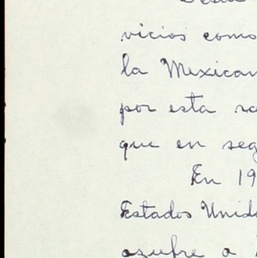 vicios como
la Mexican
por esta
que en seg
En 19
Estados Unid
azufre a